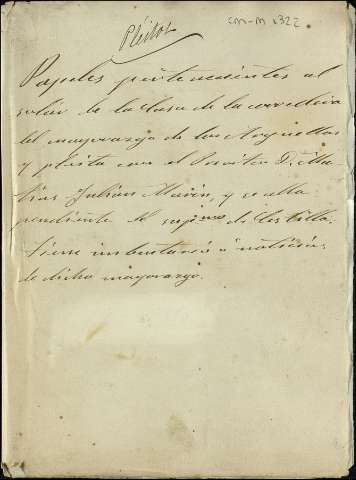 Pleitos
CM-M 1322
Papeles pertenecientes al
solar de la Casa de la corredera
del mayorazgo de los Arguellos
y pleito con el Presvitero D. Ma-
tias Julian Marin, y se alla
pendiente del sup.mo de Castilla.
tiene imbentario ó noticia,
de dicho mayorazgo.